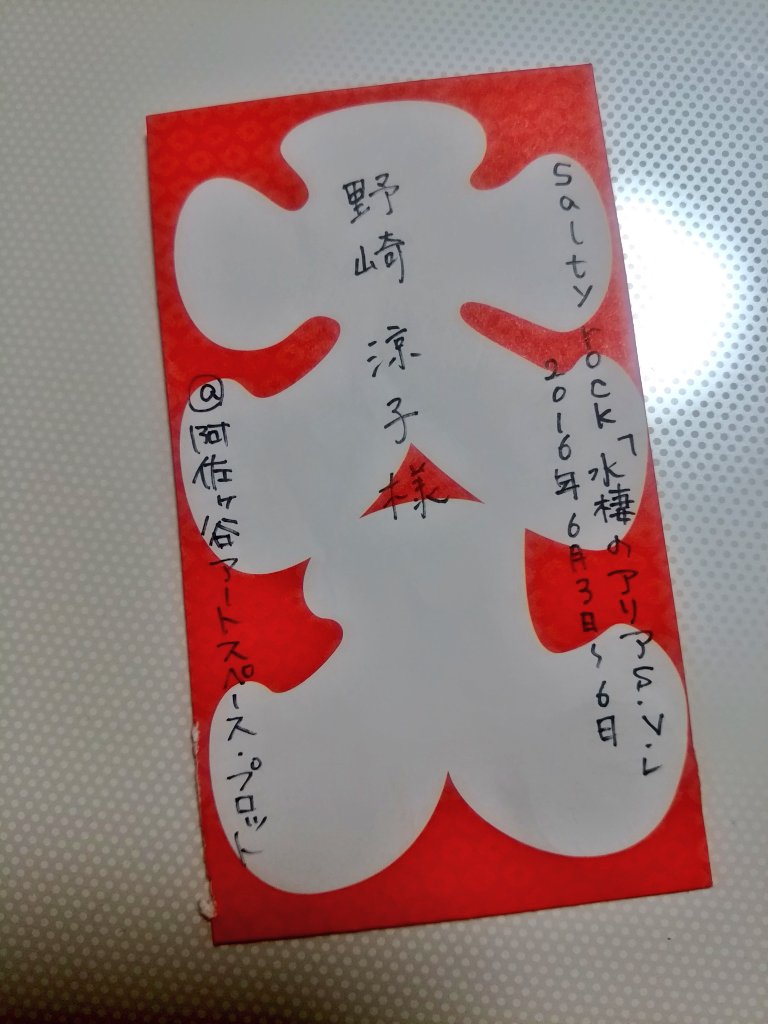 Salty rock「水棲のアリアS.V.」
2016年6月3日~6日
野崎 涼子様
@阿佐ヶ谷アートスペース・プロット
大入